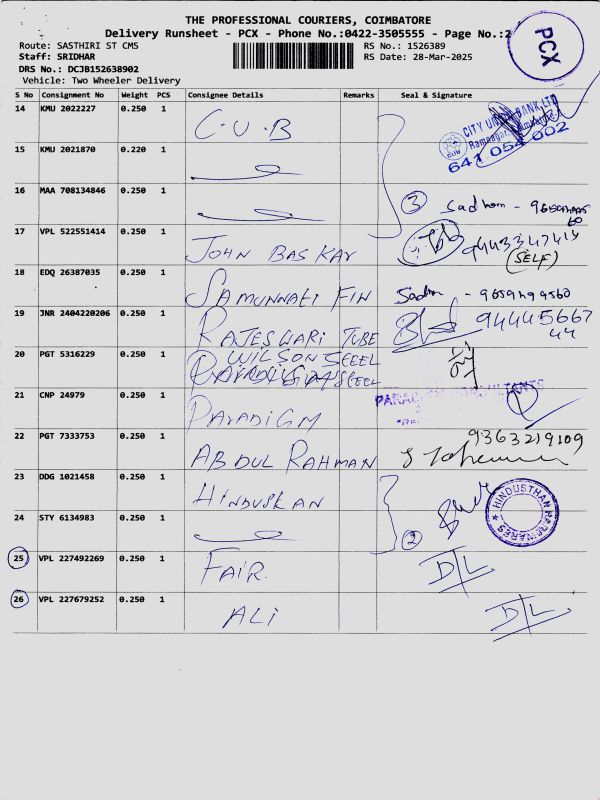 THE PROFESSIONAL COURIERS, COIMBATORE
Delivery Runsheet - PCX - Phone No.:0422-3505555 - Page No.:2
PCX
Route: SASTHIRI ST CMS
RS No.: 1526389
Staff: SRIDHAR
RS Date: 28-Mar-2025
DRS No.: DCJB152638902
Vehicle: Two Wheeler Delivery
S No Consignment No Weight PCS Consignee Details Remarks Seal & Signature
14 KMU 2022227 0.250 1 C.U.B
CITY UNION BANK LTD
641 054 002
15 KMU 2021870 0.220 1
16 MAA 708134846 0.250 1 3
17 VPL 522551414 0.250 1 JOHN BASKAR
(SELF)
18 EDQ 26387035 0.250 1 SAMUNNATI FIN
19 JNR 2404220206 0.250 1 RAJESWARI TUBE 94445667
44
20 PGT 5316229 0.250 1 WILSON STEEL
21 CNP 24979 0.250 1 PARADIGM
22 PGT 7333753 0.250 1 ABDUL RAHMAN 9363219109
23 DDG 1021458 0.250 1 HINDUSTAN
HINDUSTHAN HARDWARES
24 STY 6134983 0.250 1 2
25 VPL 227492269 0.250 1 FAIR D/L
26 VPL 227679252 0.250 1 ALI D/L